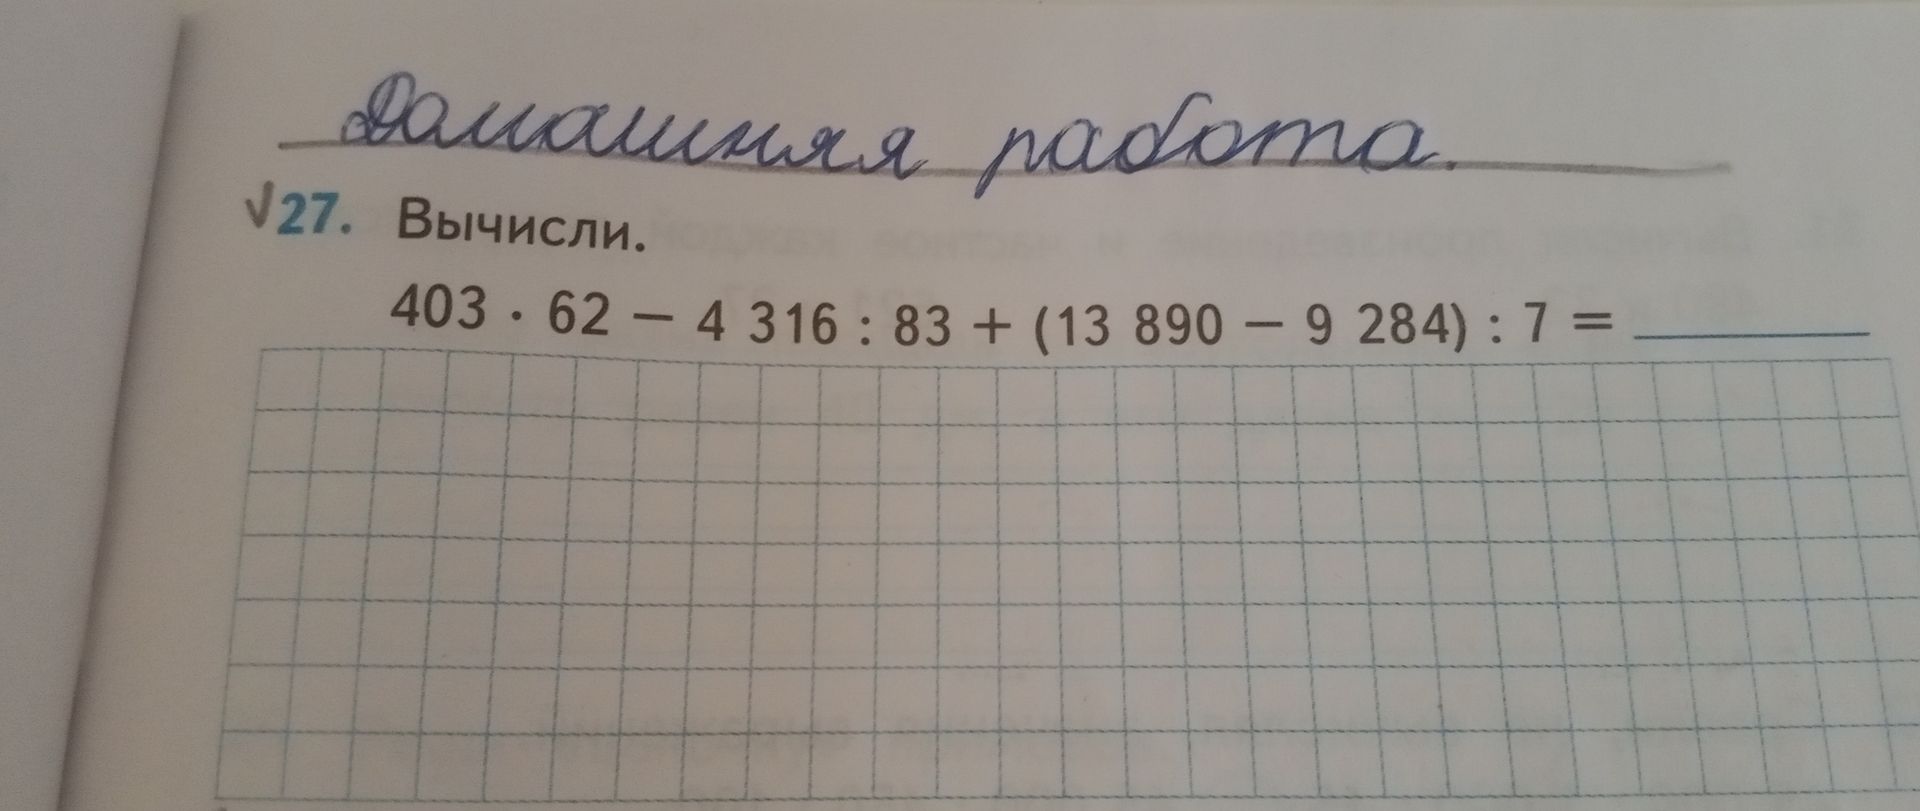 Домашняя работа.
√27. Вычисли.
403 · 62 − 4 316 : 83 + (13 890 − 9 284) : 7 = ______